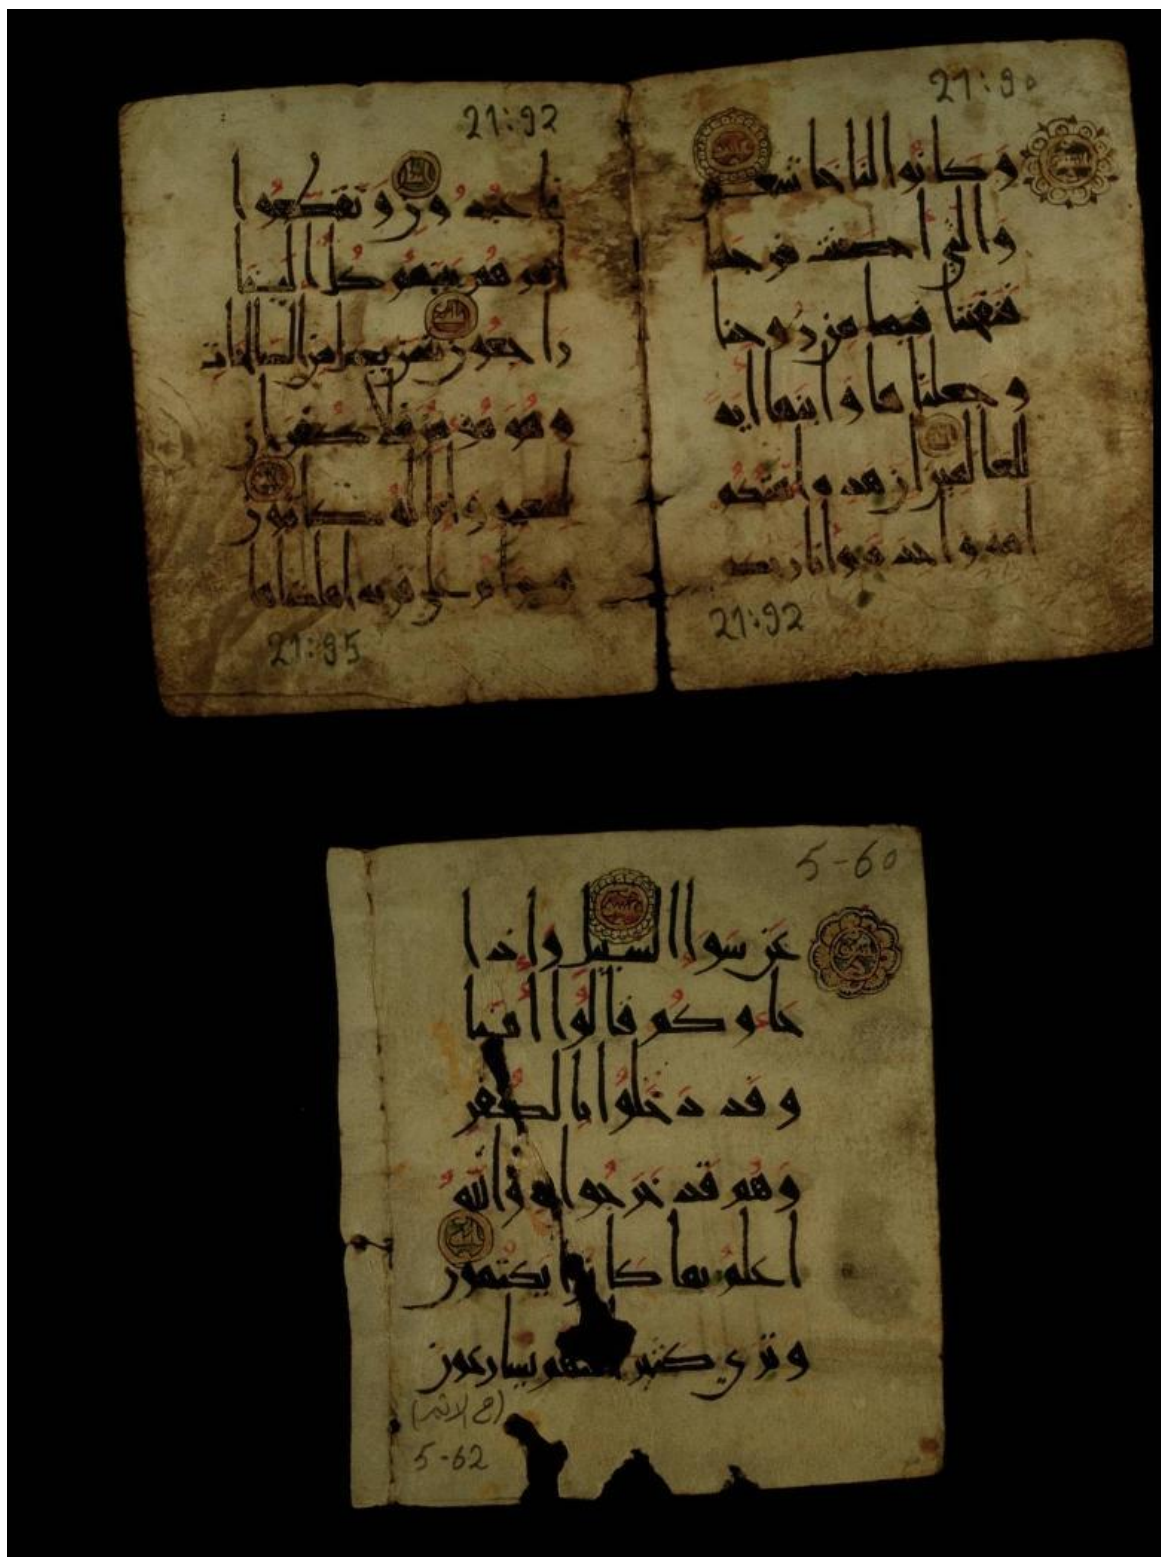 21:90
وَكَانُوا لنَا خَاشعين
والتي احصنت فرجها
فنفخنا فيها من روحنا
وجعلناها وابنها اية
للعالمين ان هذه امتكم
امة واحدة وانا ربكم
21:92
21:92
فاعبدون وتقطعوا
امرهم بينهم كل الينا
راجعون فمن يعمل من الصالحات
وهو مومن فلا كفران
لسعيه وانا له كاتبون
وحرام على قرية اهلكناها
21:95
5-60
عن سوا السبيل واذا
جاوكم قالوا امنا
وقد دخلوا بالكفر
وهم قد خرجوا به والله
اعلم بما كانوا يكتمون
وترى كثيرا منهم يسارعون
(في الاثم)
5-62